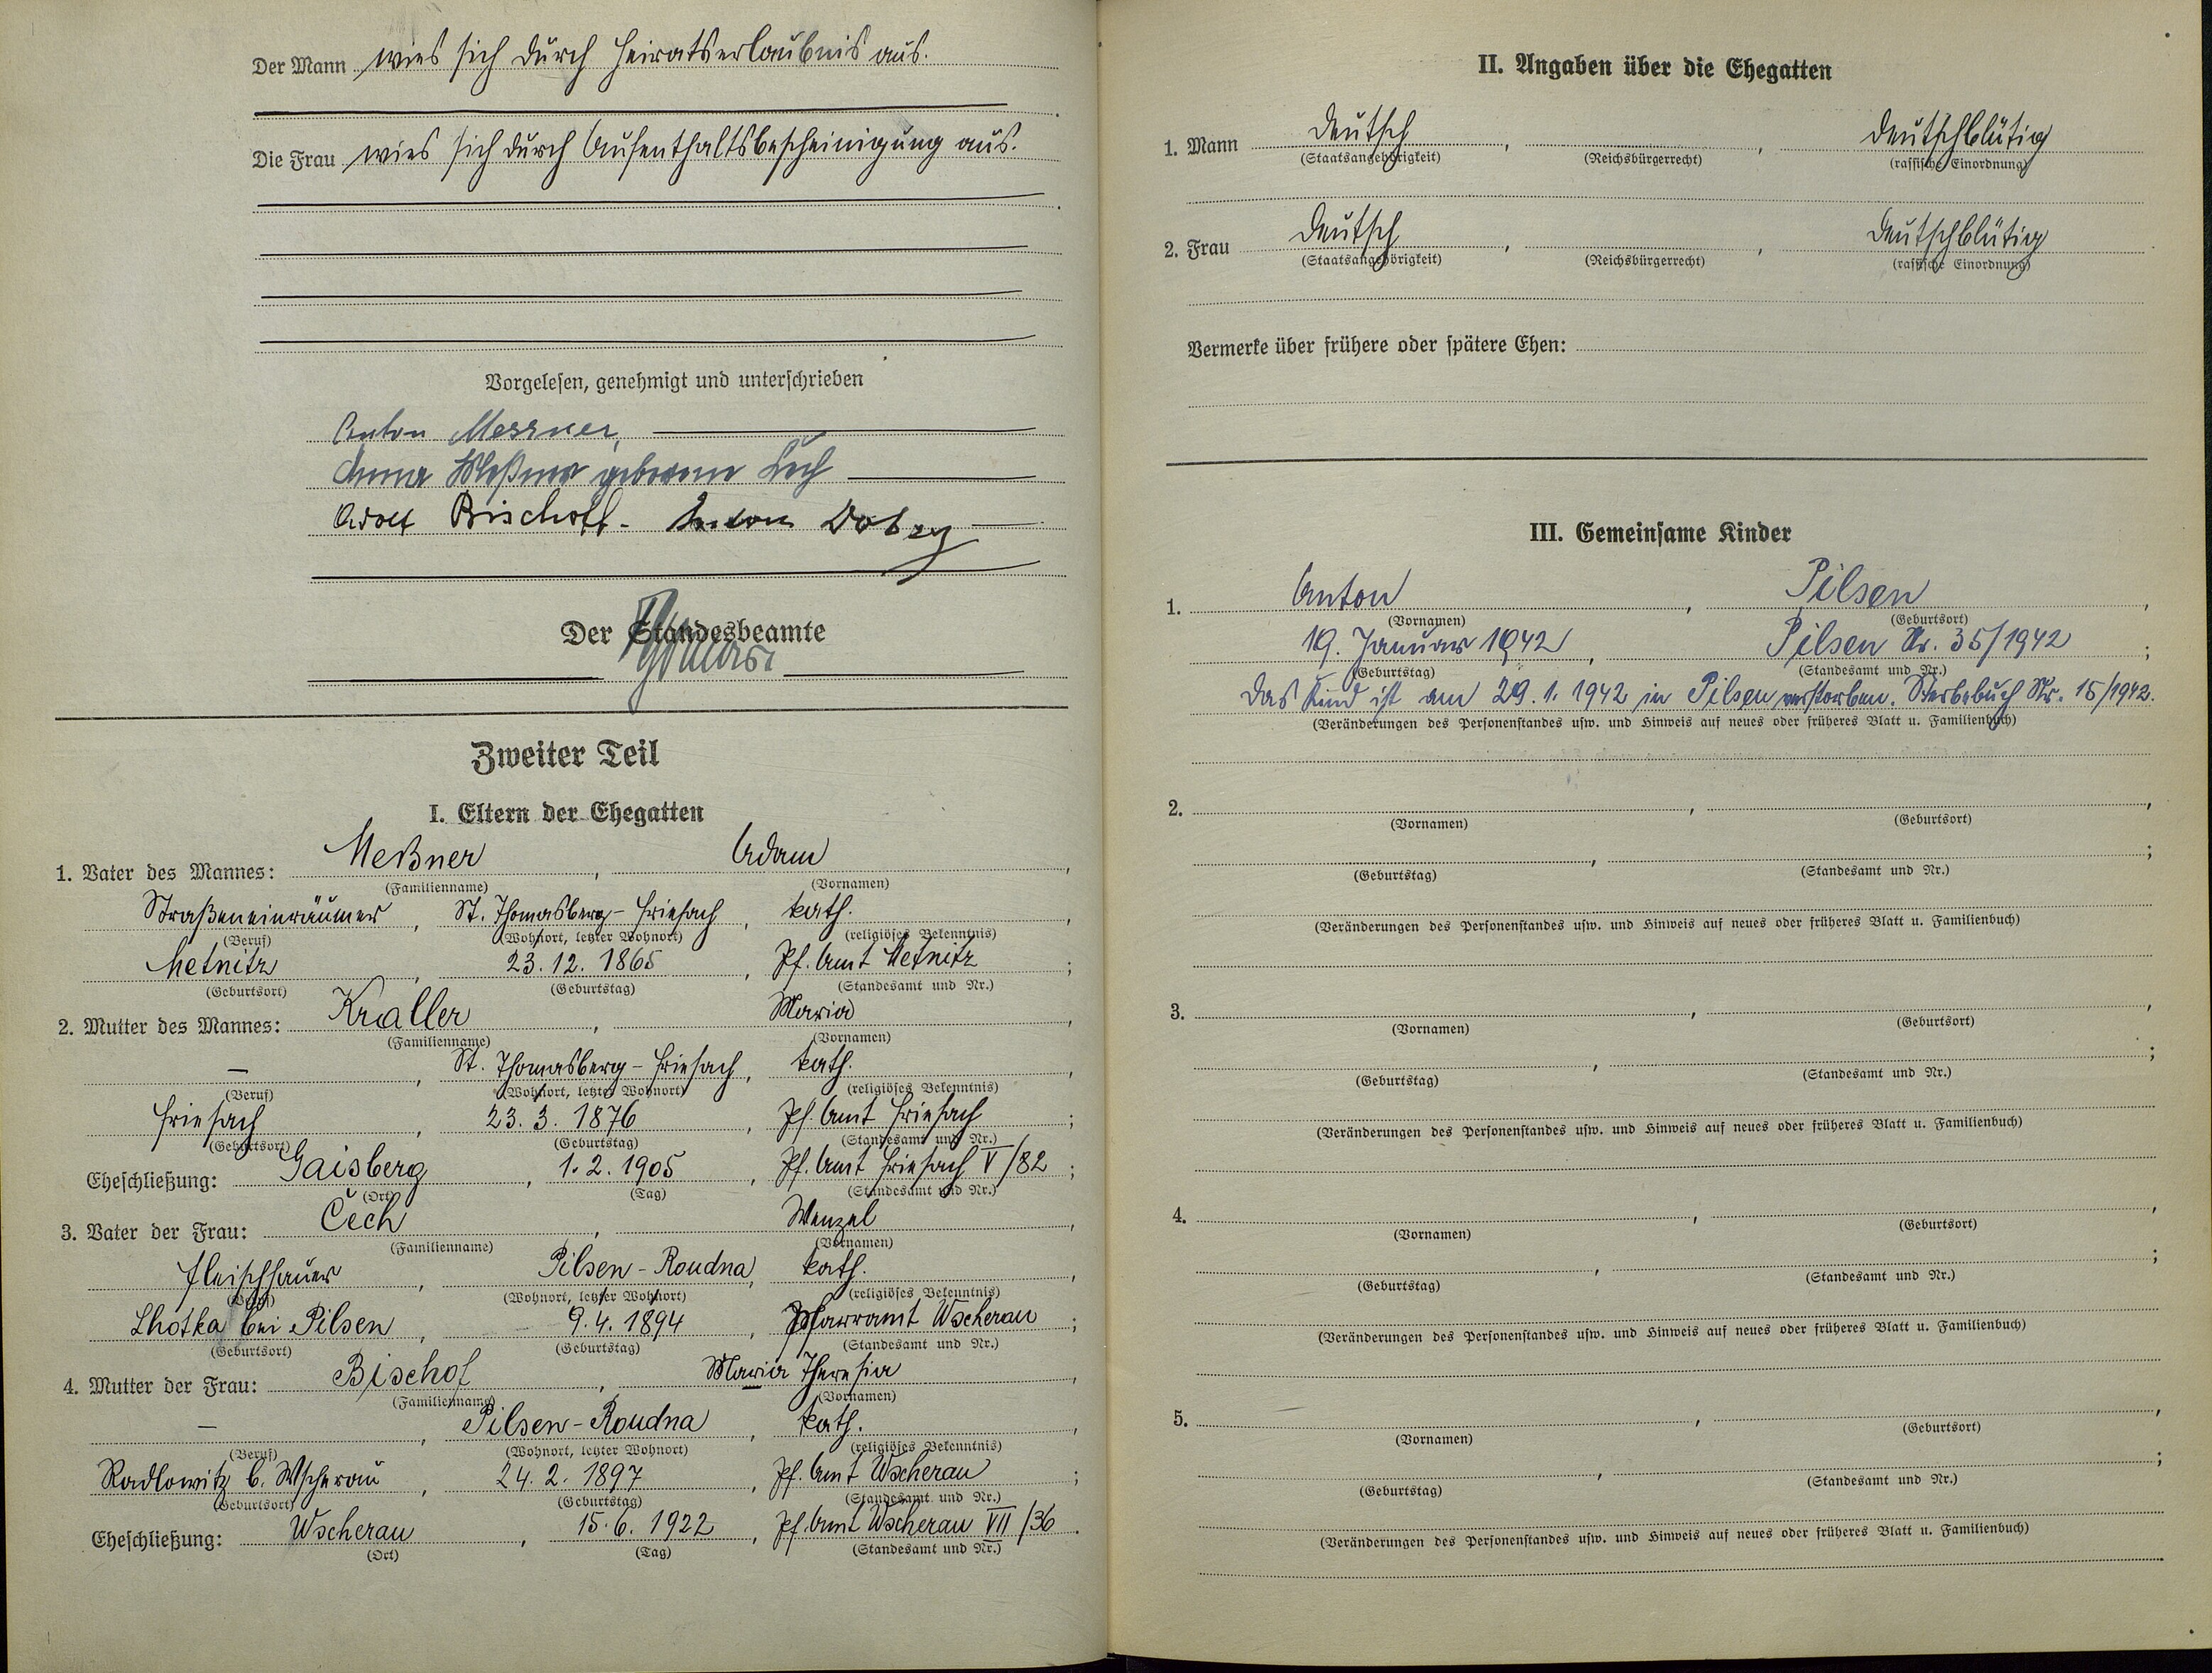 Der Mann wies sich durch Heiratserlaubnis aus.
Die Frau wies sich durch Aufenthaltsbescheinigung aus.
Vorgelesen, genehmigt und unterschrieben
Anton Messner,
Anna Meßner geborene
Adolf Bischoff - Anton
Der Standesbeamte
Zweiter Teil
I. Eltern der Ehegatten
1. Vater des Mannes: Meßner, Adam,
(Familienname) (Vornamen)
Straßeneinräumer, St. Thomasberg - Friesach, kath.,
(Beruf) (Wohnort, letzter Wohnort) (religiöses Bekenntnis)
Metnitz, 23. 12. 1865, Pf. Amt Metnitz;
(Geburtsort) (Geburtstag) (Standesamt und Nr.)
2. Mutter des Mannes: Kraller, Maria,
(Familienname) (Vornamen)
—, St. Thomasberg - Friesach, kath.,
(Beruf) (Wohnort, letzter Wohnort) (religiöses Bekenntnis)
Friesach, 23. 3. 1876, Pf. Amt Friesach;
(Geburtsort) (Geburtstag) (Standesamt und Nr.)
Eheschließung: Gaisberg, 1. 2. 1905, Pf. Amt Friesach V/82;
(Ort) (Tag) (Standesamt und Nr.)
3. Vater der Frau: Čech, Wenzel,
(Familienname) (Vornamen)
Fleischhauer, Pilsen - Roudna, kath.,
(Beruf) (Wohnort, letzter Wohnort) (religiöses Bekenntnis)
Lhotka bei Pilsen, 9. 4. 1894, Pfarramt Wscherau;
(Geburtsort) (Geburtstag) (Standesamt und Nr.)
4. Mutter der Frau: Bischof, Maria Theresia,
(Familienname) (Vornamen)
—, Pilsen - Roudna, kath.,
(Beruf) (Wohnort, letzter Wohnort) (religiöses Bekenntnis)
Radlowitz b. Wscherau, 24. 2. 1897, Pf. Amt Wscherau;
(Geburtsort) (Geburtstag) (Standesamt und Nr.)
Eheschließung: Wscherau, 15. 6. 1922, Pf. Amt Wscherau VII/36.
(Ort) (Tag) (Standesamt und Nr.)
II. Angaben über die Ehegatten
1. Mann Deutsch, , Deutschblütig
(Staatsangehörigkeit) (Reichsbürgerrecht) (rassische Einordnung)
2. Frau Deutsch, , Deutschblütig
(Staatsangehörigkeit) (Reichsbürgerrecht) (rassische Einordnung)
Vermerke über frühere oder spätere Ehen:
III. Gemeinsame Kinder
1. Anton, Pilsen,
(Vornamen) (Geburtsort)
19. Januar 1942, Pilsen Nr. 35/1942;
(Geburtstag) (Standesamt und Nr.)
Das Kind ist am 29. 1. 1942 in Pilsen verstorben. Sterbebuch Nr. 15/1942.
(Veränderungen des Personenstandes usw. und Hinweis auf neues oder früheres Blatt u. Familienbuch)
2. , ,
(Vornamen) (Geburtsort)
, ;
(Geburtstag) (Standesamt und Nr.)
(Veränderungen des Personenstandes usw. und Hinweis auf neues oder früheres Blatt u. Familienbuch)
3. , ,
(Vornamen) (Geburtsort)
, ;
(Geburtstag) (Standesamt und Nr.)
(Veränderungen des Personenstandes usw. und Hinweis auf neues oder früheres Blatt u. Familienbuch)
4. , ,
(Vornamen) (Geburtsort)
, ;
(Geburtstag) (Standesamt und Nr.)
(Veränderungen des Personenstandes usw. und Hinweis auf neues oder früheres Blatt u. Familienbuch)
5. , ,
(Vornamen) (Geburtsort)
, ;
(Geburtstag) (Standesamt und Nr.)
(Veränderungen des Personenstandes usw. und Hinweis auf neues oder früheres Blatt u. Familienbuch)